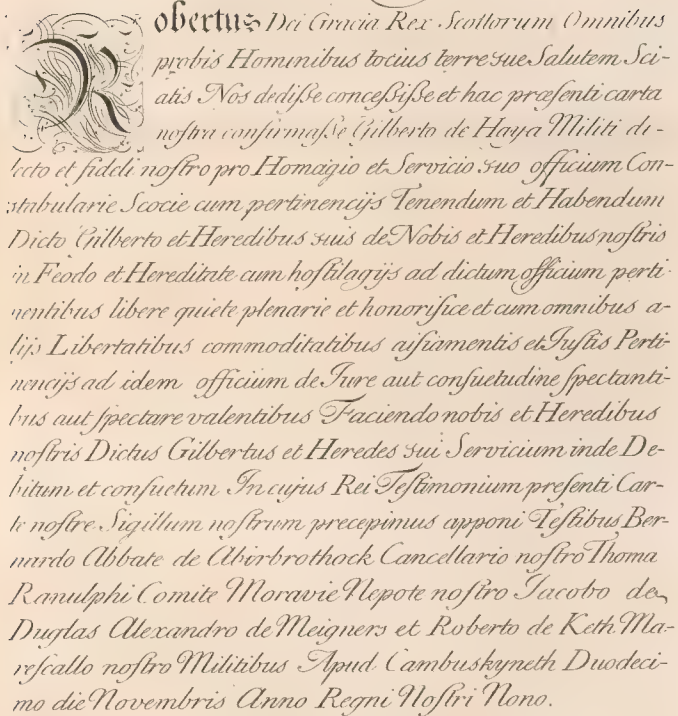 Robertus Dei Gracia Rex Scottorum Omnibus
probis Hominibus tocius terre sue Salutem Sci-
atis Nos dediſse conceſsiſse et hac præsenti carta
noſtra confirmaſse Gilberto de Haya Militi di-
lecto et fideli noſtro pro Homagio et Servicio suo officium Con-
stabularie Scocie cum pertinencijs Tenendum et Habendum
Dicto Gilberto et Heredibus suis de Nobis et Heredibus noſtris
in Feodo et Hereditate cum hoſtilagijs ad dictum officium perti-
nentibus libere quiete plenarie et honorifice et cum omnibus a-
lijs Libertatibus commoditatibus aiſiamentis et Juſtis Perti-
nencijs ad idem officium de Jure aut conſuetudine ſpectanti-
bus aut ſpectare valentibus Faciendo nobis et Heredibus
noſtris Dictus Gilbertus et Heredes sui Servicium inde De-
bitum et conſuetum In cujus Rei Teſtimonium presenti Car-
te noſtre Sigillum noſtrum precepimus apponi Teſtibus Ber-
nardo Abbate de Abirbrothock Cancellario noſtro Thoma
Ranulphi Comite Moravie Nepote noſtro Jacobo de
Duglas Alexandro de Meigners et Roberto de Keth Ma-
reſcallo noſtro Militibus Apud Cambuskyneth Duodeci-
mo die Novembris Anno Regni Noſtri Nono.